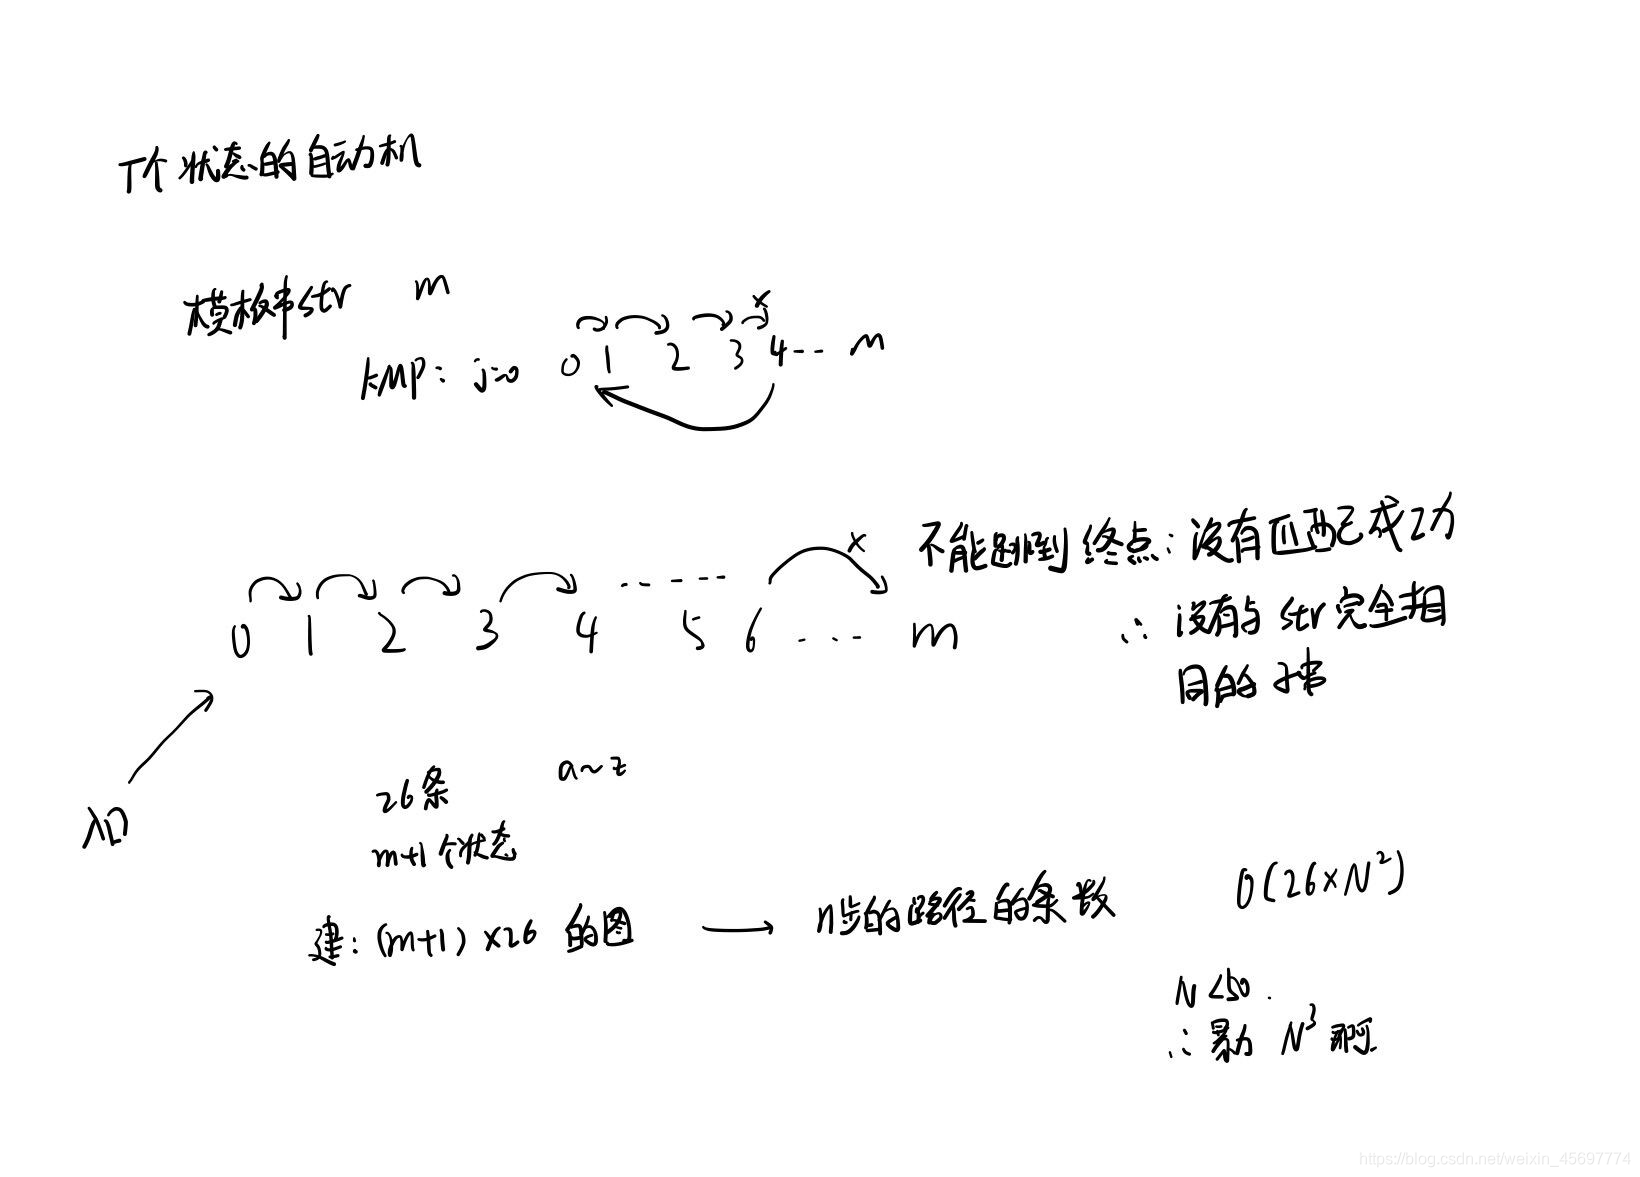 T个状态的自动机
模板串str m
x
KMP: j=0 0 1 2 3 4 ... m
x 不能跳到终点: 没有匹配成功
0 1 2 3 4 5 6 ... m ∴ 没有与 str 完全相
同的子串
26条 a~z
入口
m+1个状态
建: (m+1) ×26 的图 → n步的路径的条数 O(26×N²)
N<50.
∴ 暴力 N³ 啊
https://blog.csdn.net/weixin_45697774